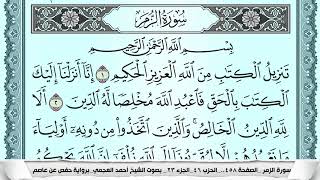 سُورَةُ الزُّمَرِ
بِسْمِ اللَّهِ الرَّحْمَٰنِ الرَّحِيمِ
تَنزِيلُ الْكِتَٰبِ مِنَ اللَّهِ الْعَزِيزِ الْحَكِيمِ ١ إِنَّا أَنزَلْنَا إِلَيْكَ
الْكِتَٰبَ بِالْحَقِّ فَاعْبُدِ اللَّهَ مُخْلِصًا لَّهُ الدِّينَ ٢ أَلَا
لِلَّهِ الدِّينُ الْخَالِصُ وَالَّذِينَ اتَّخَذُوا مِن دُونِهِ أَوْلِيَاءَ
سورة الزمر . الصفحة ٤٥٨ . الحزب ٤٦ . الجزء ٢٣ . بصوت الشيخ أحمد العجمي . برواية حفص عن عاصم